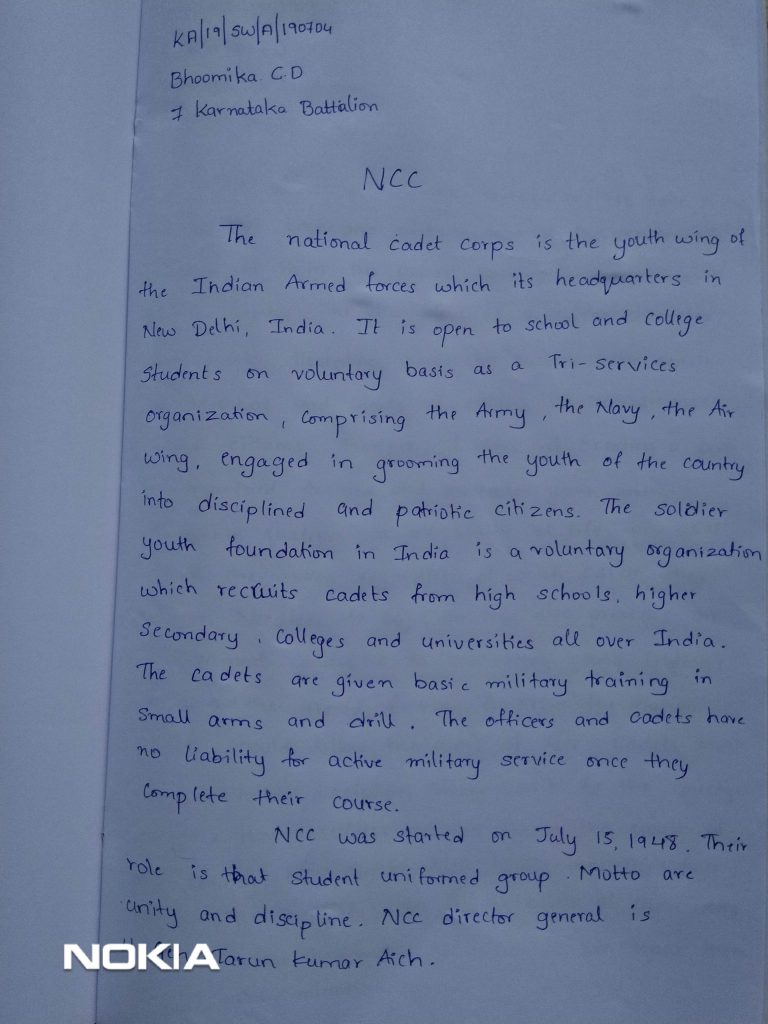 KA/19/SW/A/190704
Bhoomika C.D
7 Karnataka Battalion
NCC
The national cadet corps is the youth wing of
the Indian Armed forces which its headquarters in
New Delhi, India. It is open to school and college
Students on voluntary basis as a Tri-services
organization, Comprising the Army, the Navy, the Air
wing, engaged in grooming the youth of the country
into disciplined and patriotic citizens. The soldier
youth foundation in India is a voluntary organization
which recruits cadets from high schools, higher
Secondary, Colleges and universities all over India.
The cadets are given basic military training in
Small arms and drill. The officers and cadets have
no liability for active military service once they
Complete their course.
NCC was started on July 15, 1948. Their
role is that student uniformed group. Motto are
unity and discipline. NCC director general is
Tarun kumar Aich.
NOKIA